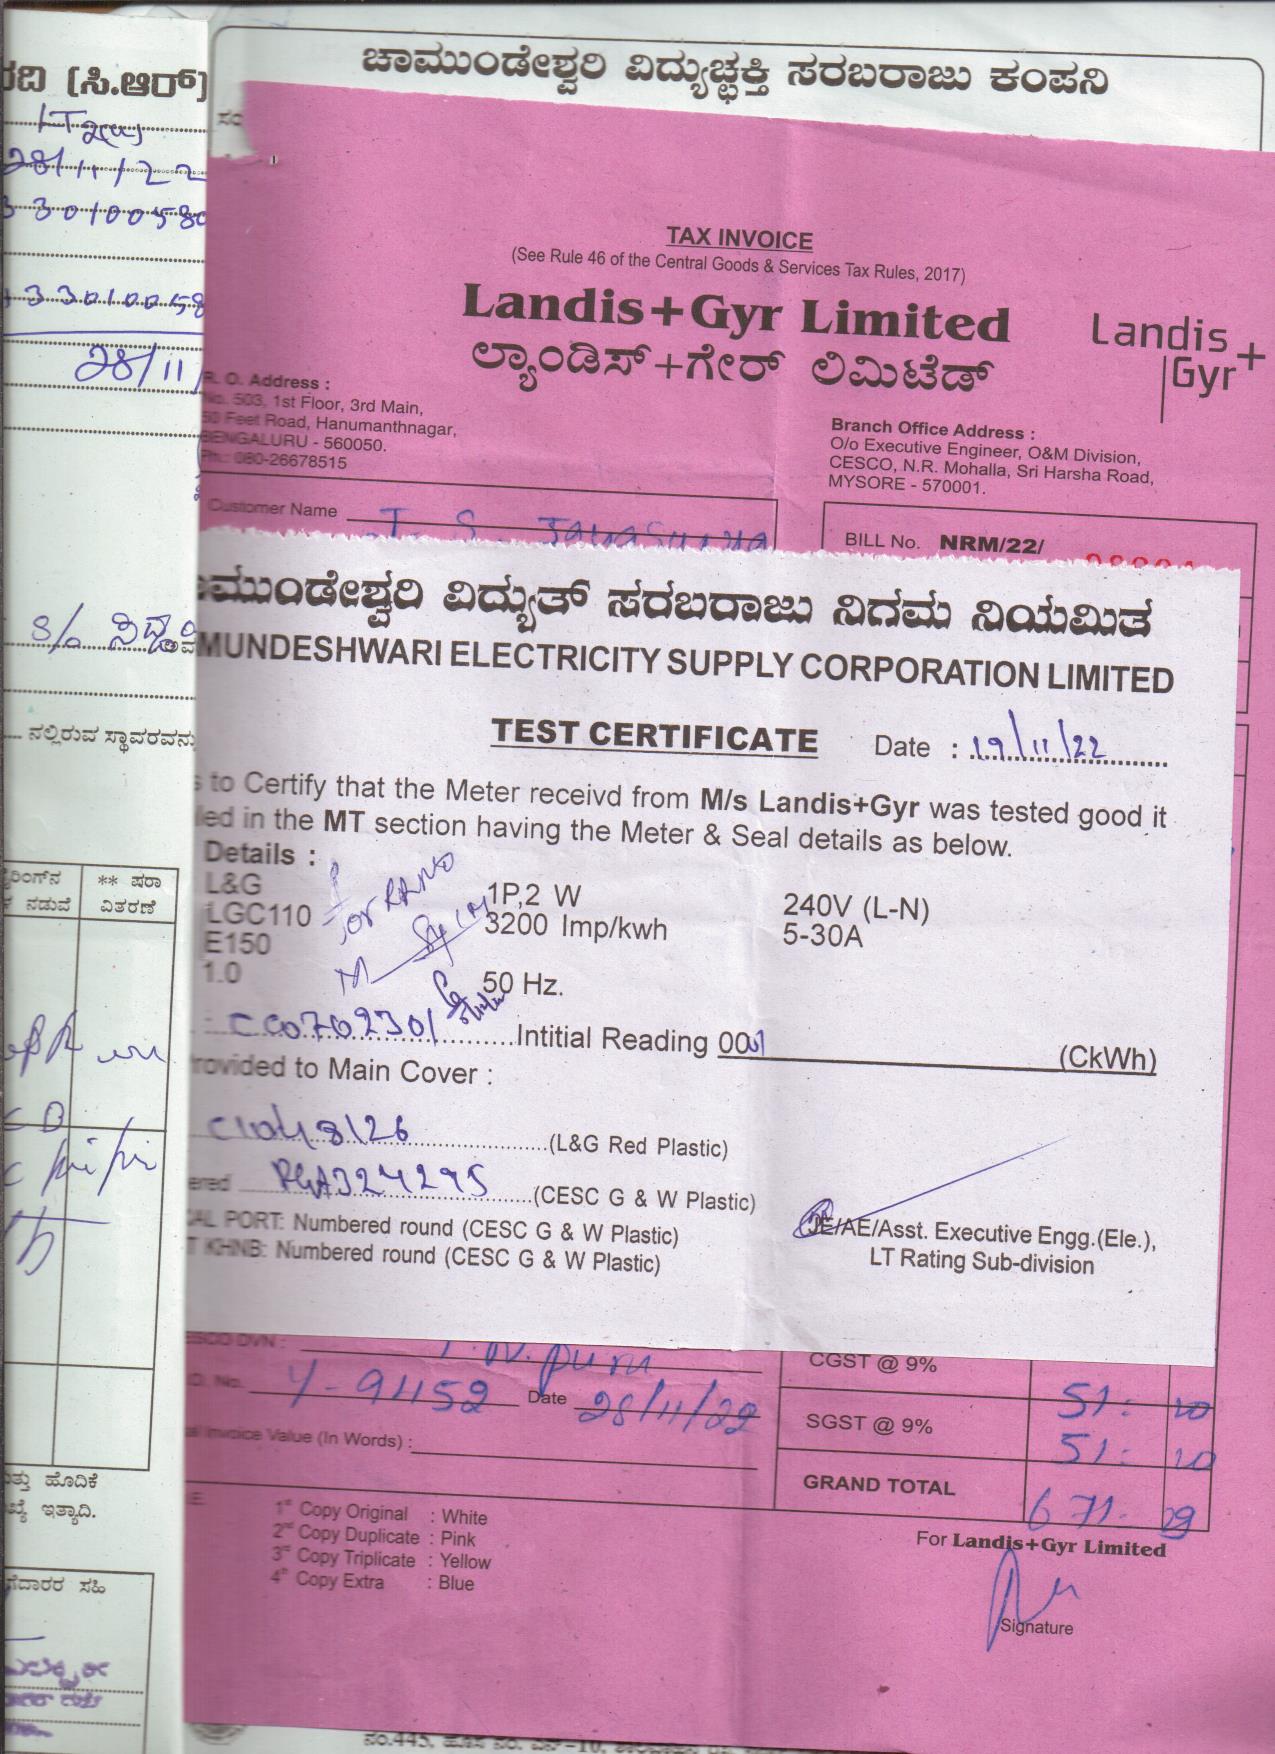 ಚಾಮುಂಡೇಶ್ವರಿ ವಿದ್ಯುಚ್ಛಕ್ತಿ ಸರಬರಾಜು ಕಂಪನಿ
(ಸಿ.ಆರ್)
28/11/22
330100580
33010058
28/11
S/o
ನಲ್ಲಿರುವ ಸ್ಥಾವರವನ್ನು
** ಷರಾ
ನಡುವೆ ವಿತರಣೆ
ಹೊದಿಕೆ
ಇತ್ಯಾದಿ.
ಸಹಿ
TAX INVOICE
(See Rule 46 of the Central Goods & Services Tax Rules, 2017)
Landis+Gyr Limited
ಲ್ಯಾಂಡಿಸ್+ಗೇರ್ ಲಿಮಿಟೆಡ್
Landis
Gyr+
R. O. Address :
No. 503, 1st Floor, 3rd Main,
50 Feet Road, Hanumanthnagar,
BENGALURU - 560050.
Ph.: 080-26678515
Branch Office Address :
O/o Executive Engineer, O&M Division,
CESCO, N.R. Mohalla, Sri Harsha Road,
MYSORE - 570001.
Customer Name
BILL No. NRM/22/
ಾಮುಂಡೇಶ್ವರಿ ವಿದ್ಯುತ್ ಸರಬರಾಜು ನಿಗಮ ನಿಯಮಿತ
MUNDESHWARI ELECTRICITY SUPPLY CORPORATION LIMITED
TEST CERTIFICATE Date : 19/11/22
s to Certify that the Meter receivd from M/s Landis+Gyr was tested good it
led in the MT section having the Meter & Seal details as below.
Details :
L&G 1P,2 W 240V (L-N)
LGC110 3200 Imp/kwh 5-30A
E150
1.0 50 Hz.
For RRNO
CC0702301 Intitial Reading 0001 (CkWh)
rovided to Main Cover :
C10418126 (L&G Red Plastic)
ered RGA324295 (CESC G & W Plastic)
CAL PORT: Numbered round (CESC G & W Plastic)
T KHNB: Numbered round (CESC G & W Plastic)
JE/AE/Asst. Executive Engg.(Ele.),
LT Rating Sub-division
CESCO DVN : T. N. pura
Y-91152 Date 28/11/22
Invoice Value (In Words) :
CGST @ 9% 51: 20
SGST @ 9% 51: 20
GRAND TOTAL 671-
1st Copy Original : White
2nd Copy Duplicate : Pink
3rd Copy Triplicate : Yellow
4th Copy Extra : Blue
For Landis+Gyr Limited
Signature
ನಂ.445,